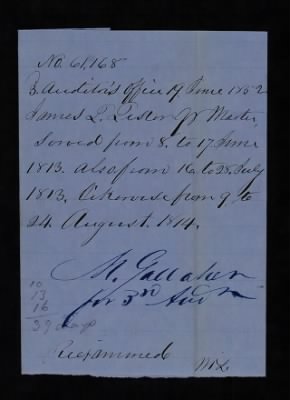 No. 61,168
3 Auditor's Office 19 June 1852
James L. Lester Qr Master
served from 8. to 17 June
1813. also from 16 to 28 July
1813. Likewise from 9 to
24. August. 1814.
M. Gallaher
for 3rd Aud r
10
13
16
39 days
Reexammed